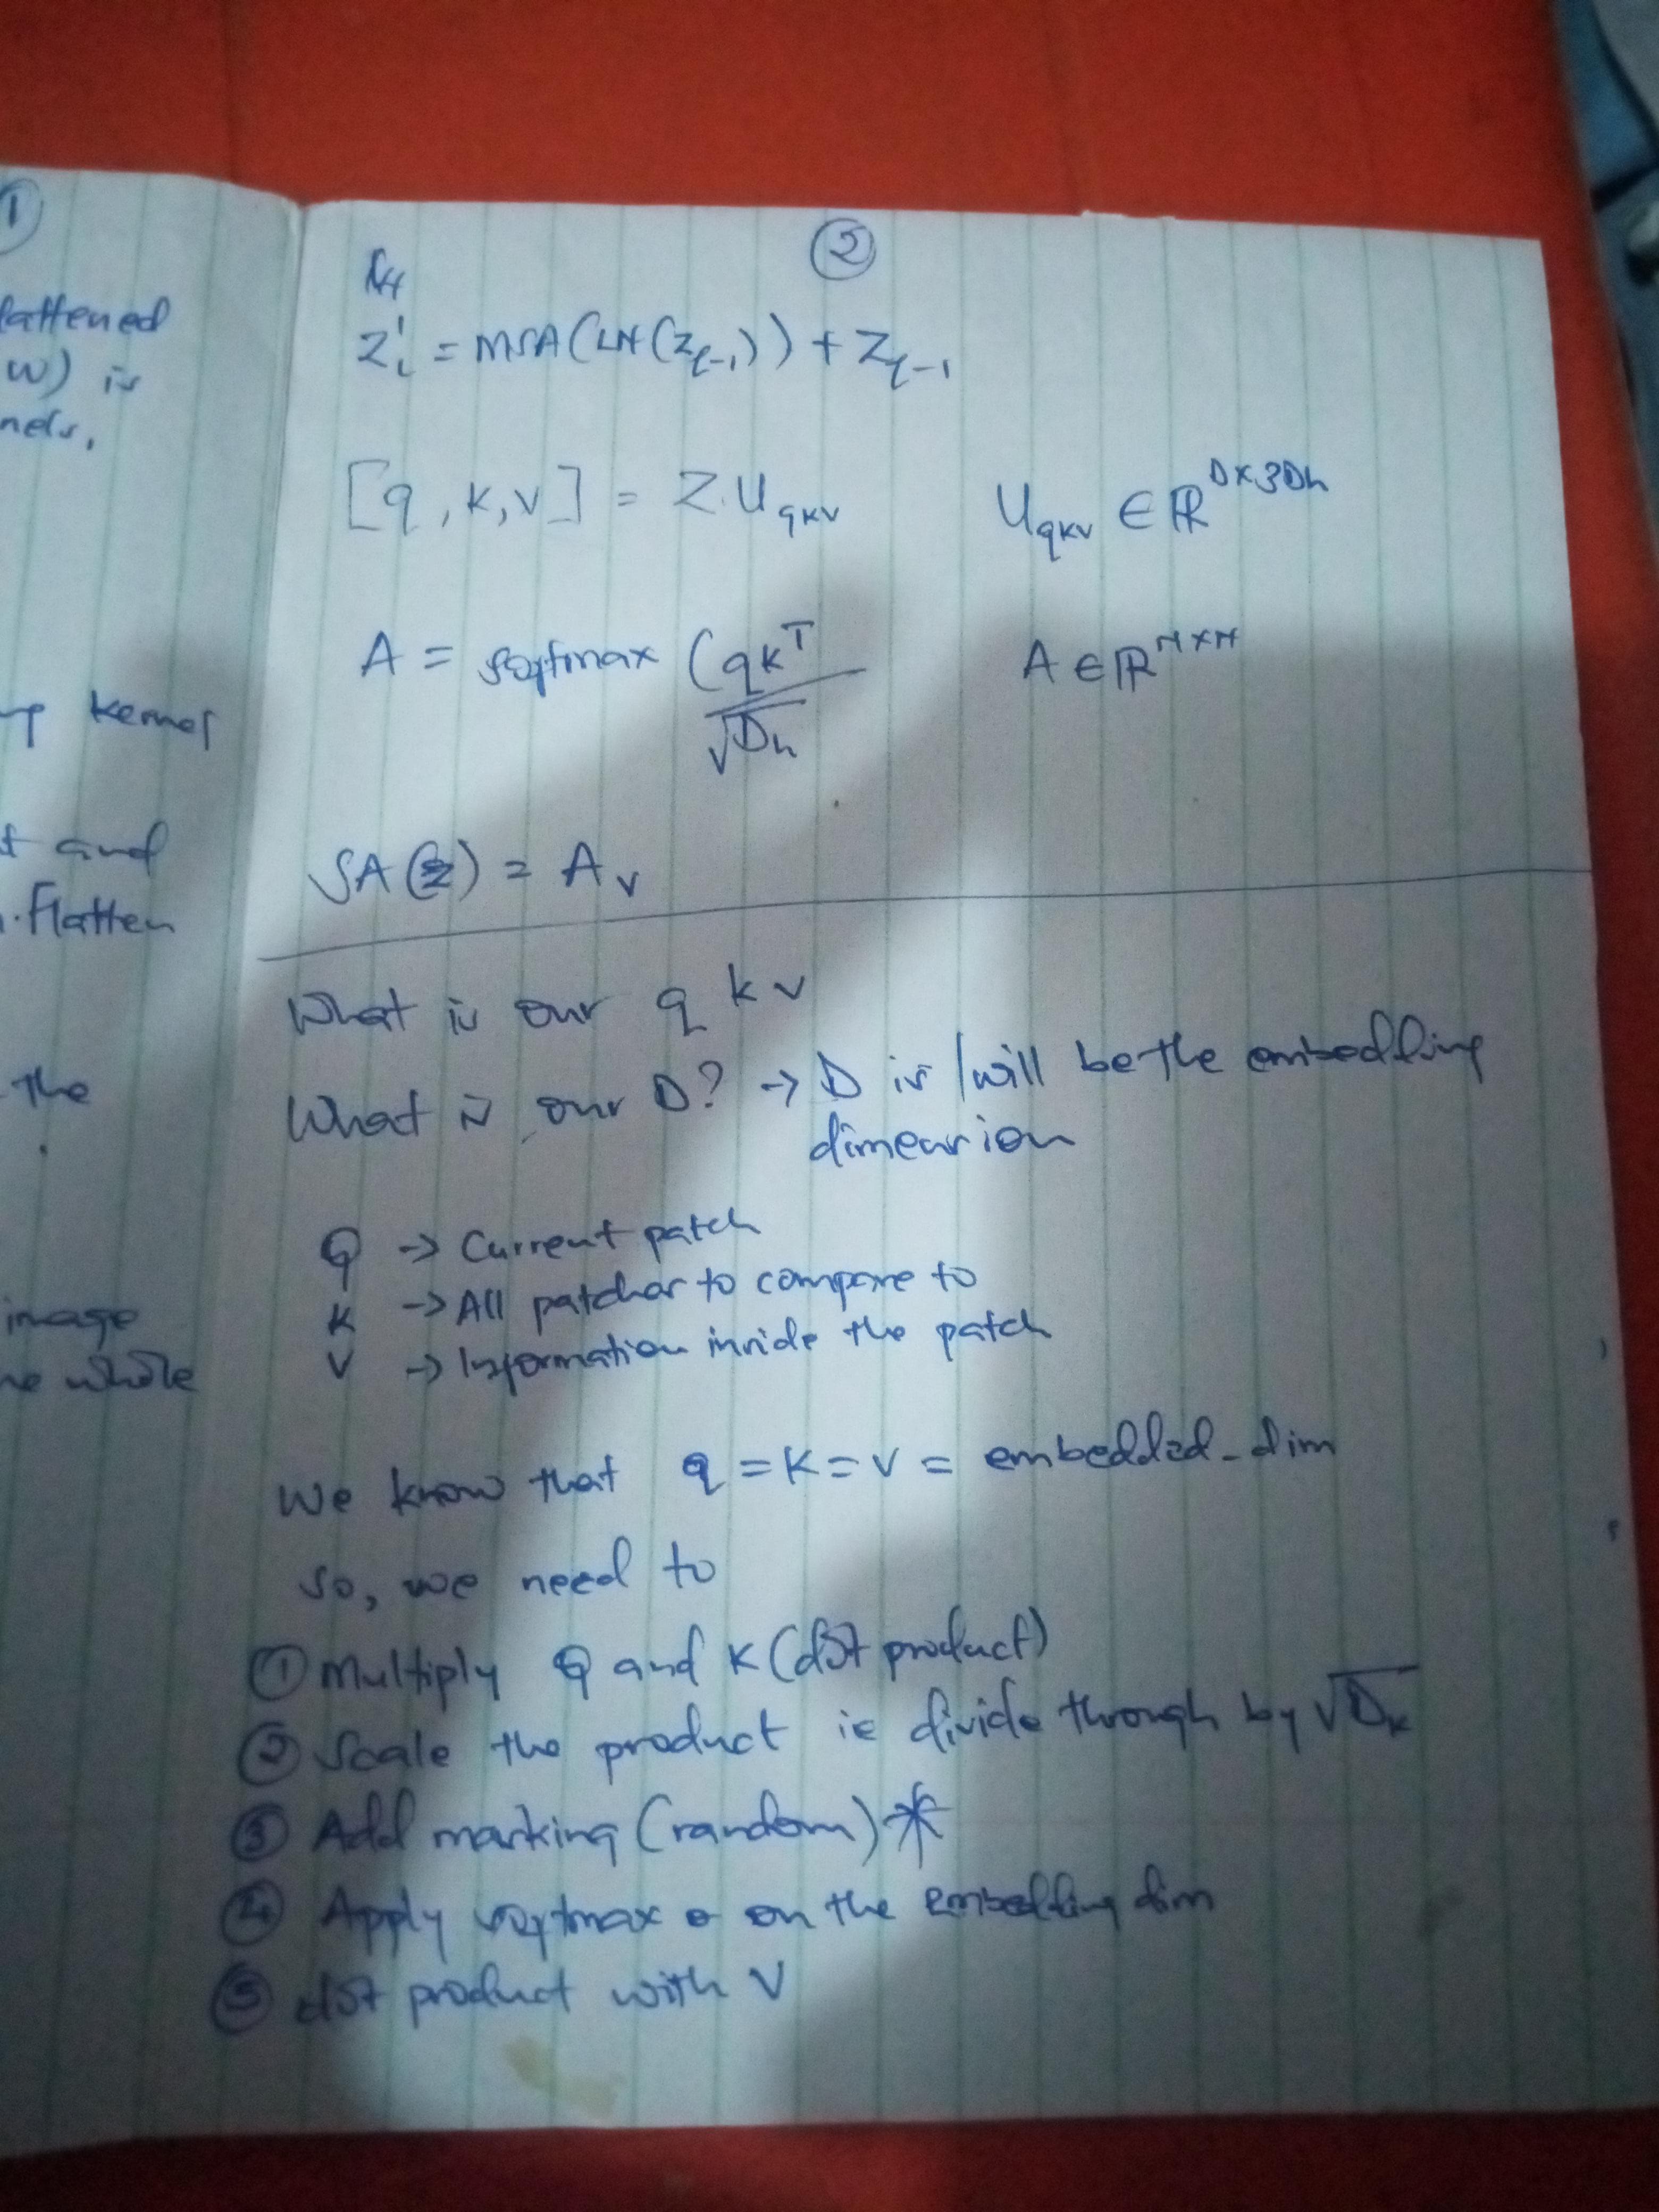 1
lattened
w) is
nels,
kernel
t and
n. Flatten
the
image
he whole
2
Z'l = MSA(LN(Zℓ-1)) + Zℓ-1
[q, k, v] = Z. U qkv U qkv ∈ ℝ D×3Dh
A = softmax (qk^T / √Dh A ∈ ℝ N×N
SA(z) = Av
What is our q k v
What is our D? → D is/will be the embedding
dimension
Q → Current patch
K → All patches to compare to
V → Information inside the patch
We know that q = K = V = embedded_dim
So, we need to
① Multiply Q and K (dot product)
② Scale the product ie divide through by √Dk
③ Add masking (random) *
④ Apply softmax on the embedding dim
⑤ dot product with V